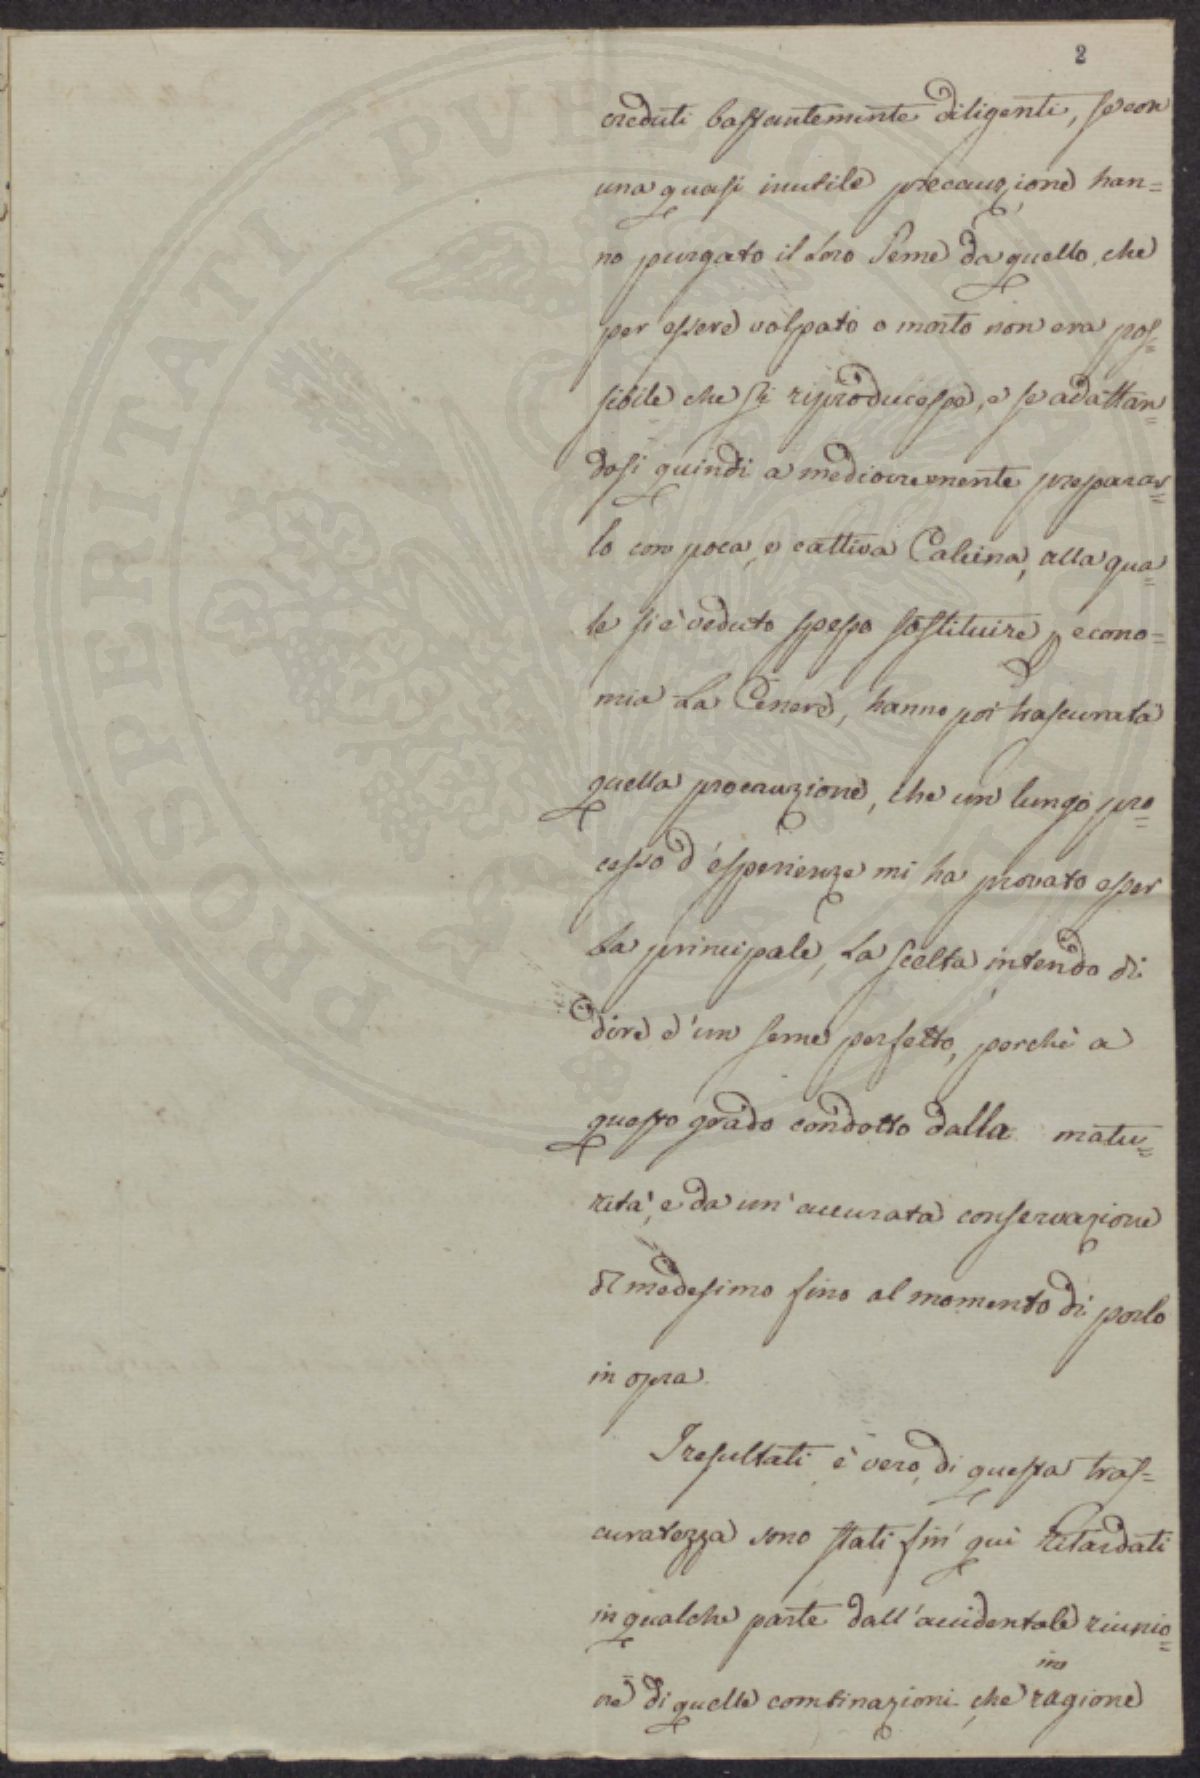 2
creduti bastantemente diligenti, se con
una quasi inutile precauzione han=
no purgato il loro Seme da quello, che
per essere volpato o morto non era pos=
sibile che si riproducesse, e se adattan=
dosi quindi a mediocremente preparar=
lo con poca, e cattiva Calcina, alla qua=
le si è veduto spesso sostituire p econo=
mia La Cenere, hanno poi trascurata
quella precauzione, che un lungo pro=
cesso d'esperienze mi ha provato esser
la principale, La scelta intendo di
dire d'un seme perfetto, perchè a
questo grado condotto dalla matu=
rità, e da un' accurata conservazione
del medesimo fino al momento di porlo
in opra
I resultati è vero, di questa tras=
curatezza sono stati fin' qui ritardati
in qualche parte dall'accidentale riunio=
ne di quelle combinazioni, che in ragione
PROSPERITATI PVBLICAE